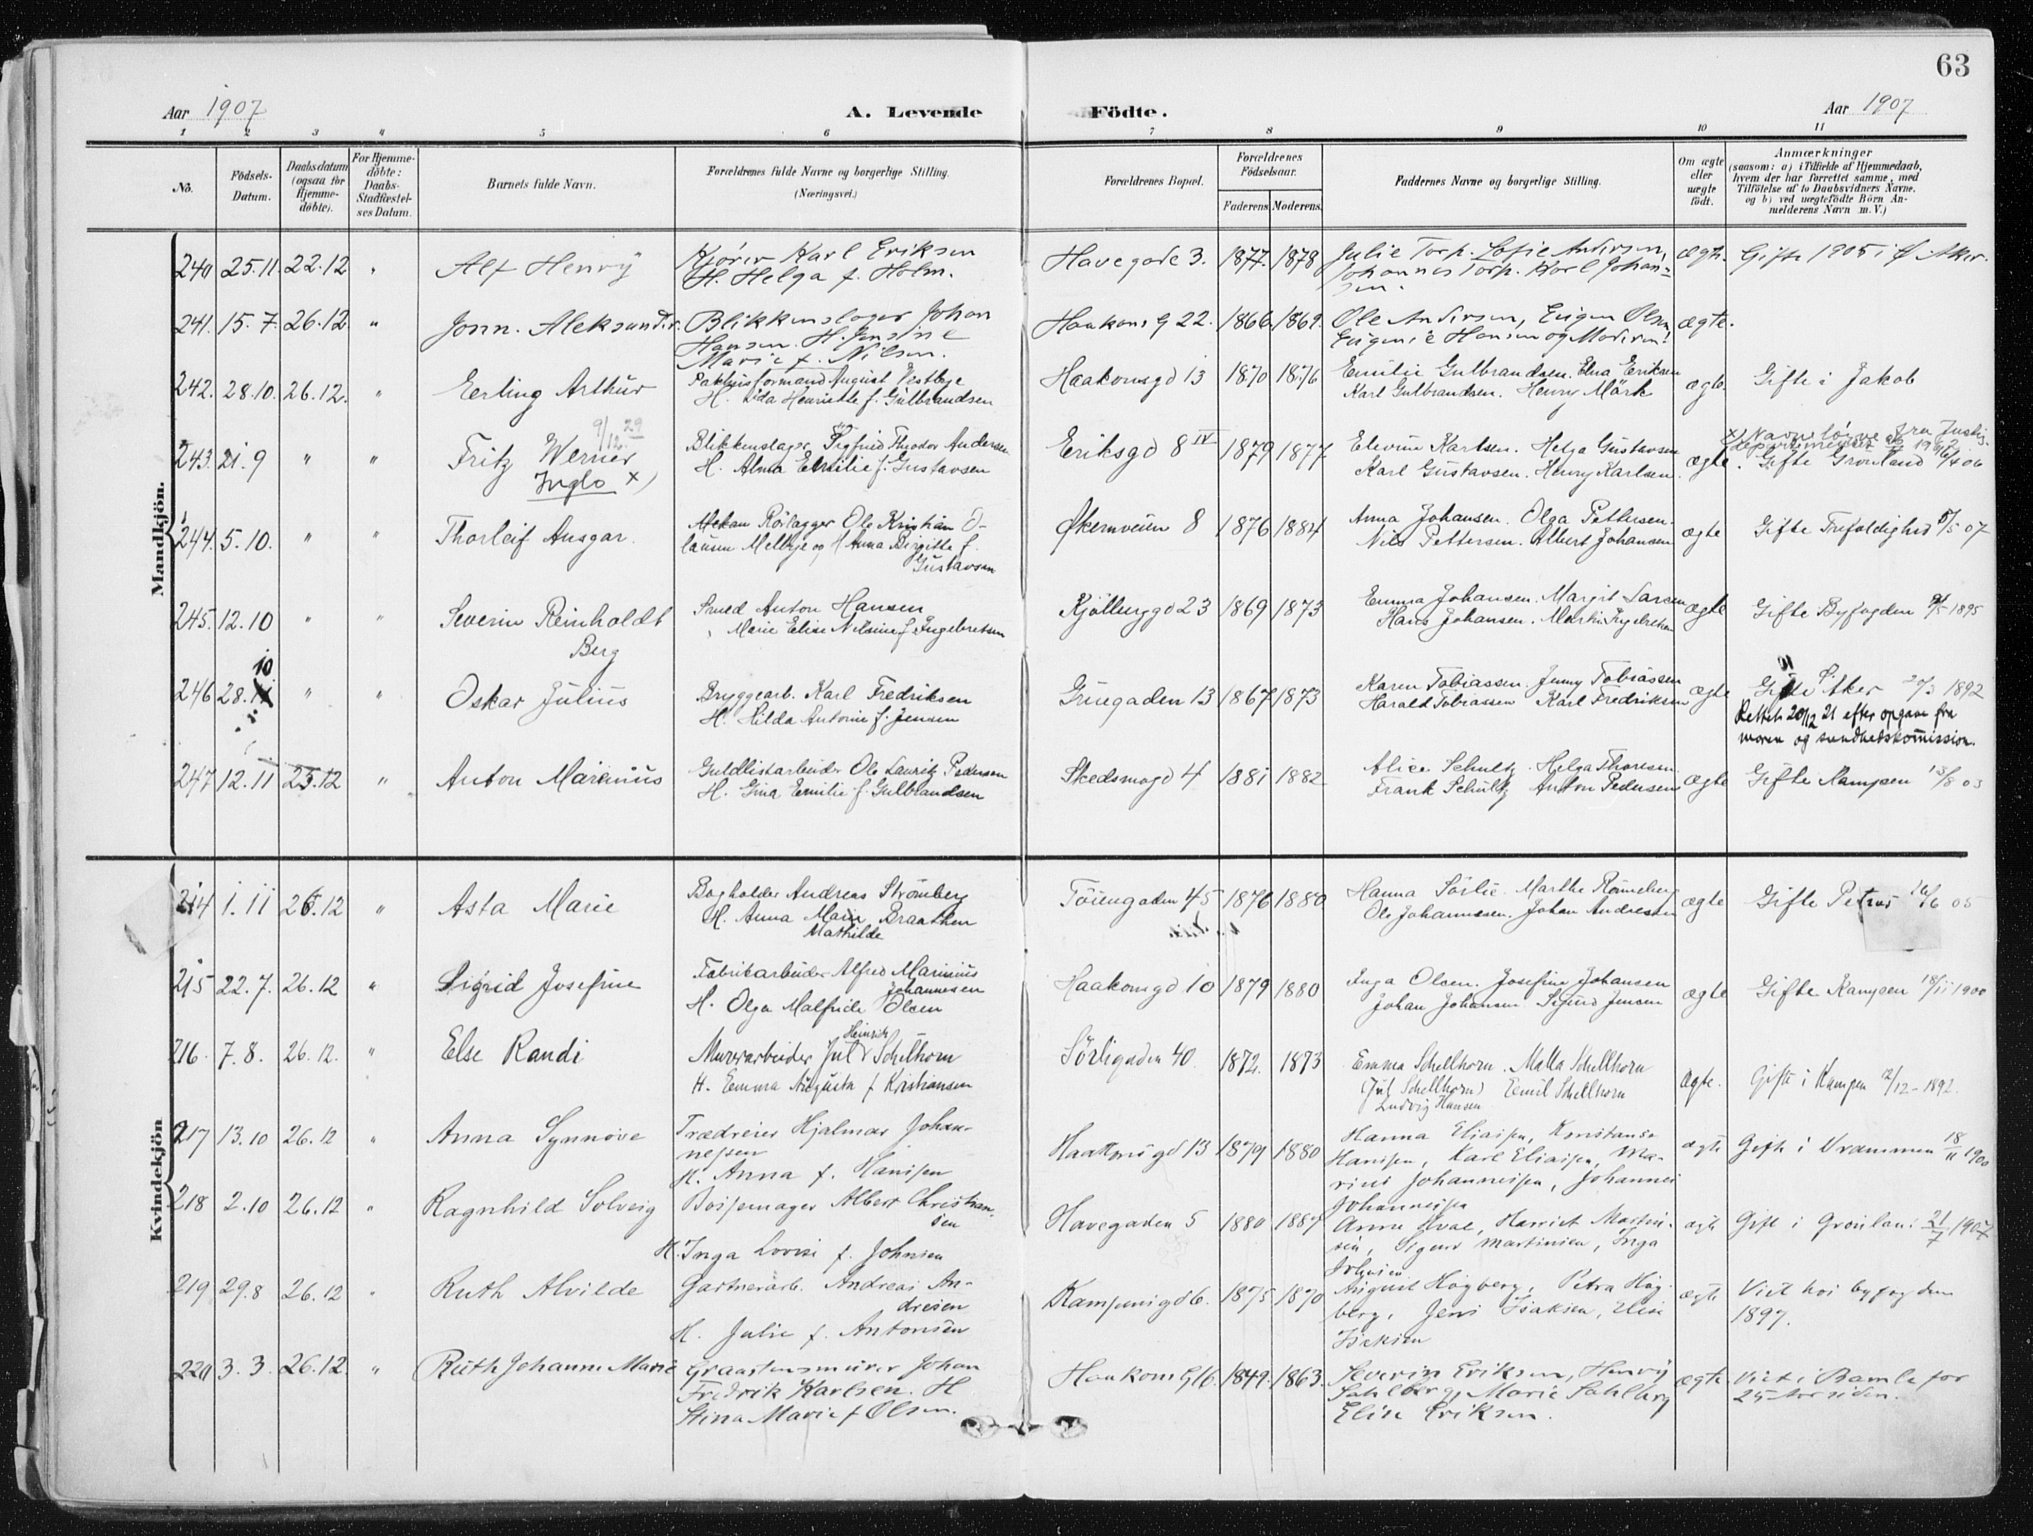 63
Aar 1907 A. Levende Födte. Aar 1907
1 2 3 4 5 6 7 8 9 10 11
No. Födsels-Datum. Daabsdatum (ogsaa for Hjemme-döbte). For Hjemme-döbte: Daabs-Stadfæstel-ses Datum. Barnets fulde Navn. Forældrenes fulde Navne og borgerlige Stilling. (Næringsvei.) Forældrenes Bopæl. Forældrenes Födselsaar. Faderens. Moderens. Faddernes Navne og borgerlige Stilling. Om ægte eller uægte födt. Anmærkninger (saasom: a) i Tilfælde af Hjemmedaab, hvem der har forrettet samme, med Tilföielse af to Daabsvidners Navne, og b) ved uægtefödte Börn An-melderens Navn m. V.)
Mandkjön.
240 25.11 22.12 " Alf Henry Kjører Karl Eriksen Havegade 3. 1877. 1878 Julie Torp. Sofie Andersen, ægte. Gifte 1905 i Ø Aker.
H. Helga f. Holm. Johannes Torp. Karl Johan-
sen.
241. 15.7. 26.12 " Jonn. Aleksander. Blikkenslager Johan Haakons G 22. 1866. 1869. Ole Andersen, Eugen Olsen, ægte.
Hansen. H. Jensine Eugenie Hansen og Moderen.
Marie f. Nilsen.
242. 28.10. 26.12. " Erling Arthur Pakhusformand August Vestbye Haakonsgd 13 1870 1876 Emilie Gulbrandsen. Elna Eriksen ægte. Gifte i Jakob
H. Ida Henriette f. Gulbrandsen Karl Gulbrandsen. Henry Mörk
243. 21.9 " " Fritz Werner 9/12 29 Blikkenslager Sigfried Theodor Andersen Eriksgd 8 IV 1879 1877 Elevine Karlsen. Helga Gustavsen ægte. x) Navn fra Justis-
departementet 1962
Inglo x) H. Alma Emilie f. Gustavsen Karl Gustavsen. Henry Karlsen. Gifte Grönland 6/4 06
244. 5.10. " " Thorleif Ansgar. Rörlægger Ole Kristian O- Økernveien 8 1876 1884 Anna Johansen. Olga Pettersen. ægte Gifte Trefoldighed 5/5 07
lausen Melbye og H. Anna Birgitte f. Nils Pettersen. Albert Johansen
Gustavsen
245. 12.10 " " Severin Reinholdt Smed Anton Hansen Kjölberggd 23 1869 1873 Emma Johansen. Margit Larsen ægte Gifte Byfogden 1895
Berg Marie Elise Nilsine f. Ingebretsen Hans Johansen. Martin Ingebretsen
246 28. 10 " " Oskar Julius Bryggearb. Karl Fredriksen Gruegaden 13 1867 1873 Karen Tobiassen. Jenny Tobiassen ægte Gifte Ø Aker 20/3 1892
H. Hilda Antonie f. Jensen Harald Tobiassen Karl Fredriksen Rettet 20/12 21 efter opgave fra
moren og sundhetskommission.
247 12.11 25.12 " Anton Marenius Guldlistarbeider Ole Lauritz Pedersen Skedsmogd 4 1881 1882 Alice Schultz. Helga Thoresen. ægte Gifte Kampen 13/8 03
H. Gina Emilie f. Gulbrandsen Frank Schultz Anton Pedersen
Kvindekjön
214 1.11 26.12 " Asta Marie Bogholder Andreas Strömberg Töiengaden 45 1876 1880 Hanna Sörlie. Marthe Rönneberg ægte Gifte Petrus 16/6 05
H. Anna Marie Braathen Ole Johannessen. Johan Andresen
Mathilde
215 22.7. 26.12 " Sigrid Josefine Fabrikarbeider Alfred Marinius Haakonsgd 10 1879 1880 Inga Olsen. Josefine Johansen ægte Gifte Kampen 18/11 1900
Johannesen
H. Olga Malfride Olsen Johan Johansen Sigurd Jensen
216. 7.8. 26.12. " Else Randi Murerarbeider Jul Heinrich Schelhorn Sörligaden 40 1872. 1873 Emma Schellhorn. Malla Schellhorn ægte. Gifte i Kampen 12/12-1892.
H. Emma Augusta f Kristiansen (Jul Schellhorn) Emil Schellhorn
Ludvig Hansen
217 13.10 26.12 " Anna Synnöve Trædreier Hjalmar Johan- Haakonsgd 13 1879 1880 Hanna Eliaisen, Konstanse ægte Gift i Drammen 18/11 1900
nesen Hansen, Karl Eliaisen, Ma-
H. Anna f. Hansen rius Johannesen, Johannes
Johannesen
218 2.10 26.12 " Ragnhild Solveig Albert Christian- Havegaden 5 1880 1887 Anna Hval, Harriet Martin- ægte Gift i Grønland 21/7 1907
sen sen, Sigurd Martinsen, Inga
H. Inga Lovise f. Johnsen
219 29.8 26.12 " Ruth Alvilde Gartnerarb. Andreas An- Kampensgd 6. 1875 1870 August Högberg, Petra Hög- ægte Viet hos byfogden
dresen berg, Jens Isaksen, Elise 1897.
H. Julie f. Antonsen Isaksen
220 3.3 26.12 " Ruth Johanne Marie Graastensmurer Johan Haakons G 16. 1849. 1863. Severin Eriksen, Henry ægte Viet i Bamle for
Fredrik Karlsen. H Sahlberg, Marie Sahlberg 25 Aar siden.
Stina Marie f Olsen. Elise Eriksen.